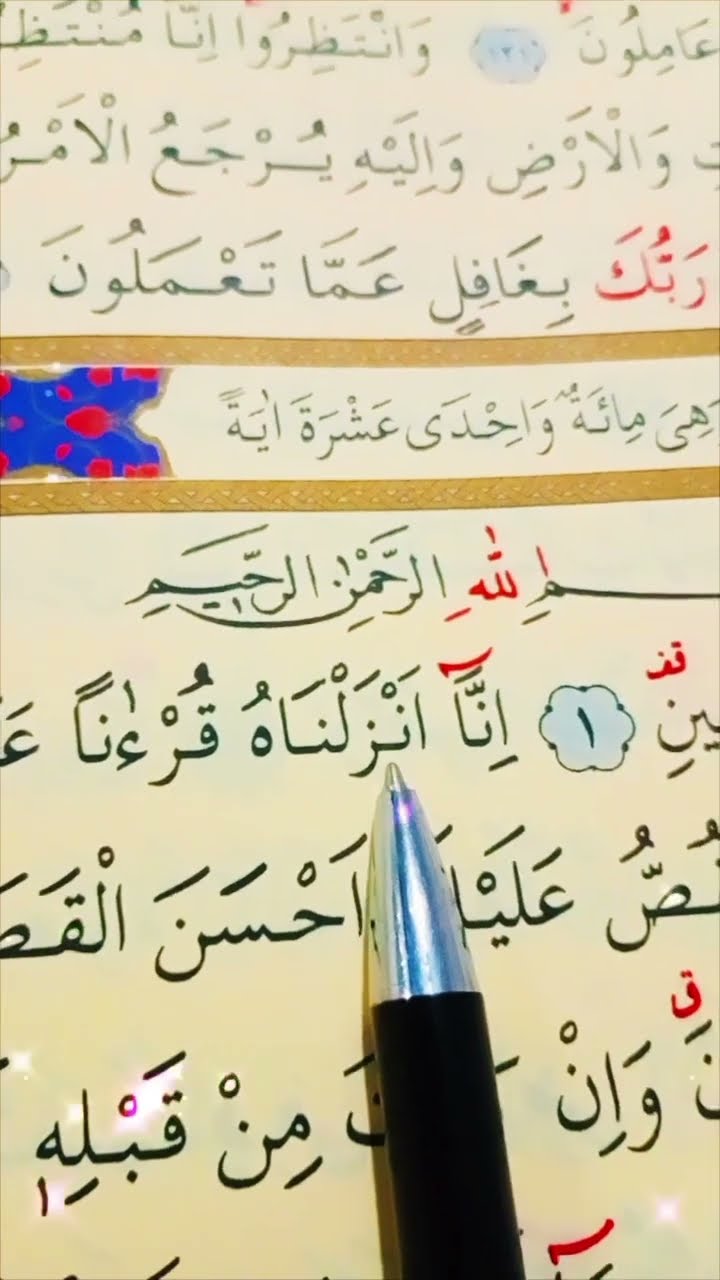 عَامِلُونَ ﴿١٢١﴾ وَانْتَظِرُوا اِنَّا
وَالْاَرْضِ وَاِلَيْهِ يُرْجَعُ الْاَمْرُ
رَبُّكَ بِغَافِلٍ عَمَّا تَعْمَلُونَ
وَهِىَ مِائَةٌ وَاِحْدٰى عَشْرَةَ اٰيَةً
اللّٰهِ الرَّحْمٰنِ الرَّحٖيمِ
قف
﴿١﴾ اِنَّٓا اَنْزَلْنَاهُ قُرْءٰناً
عَلَيْكَ اَحْسَنَ
ق
وَاِنْ مِنْ قَبْلِهٖ